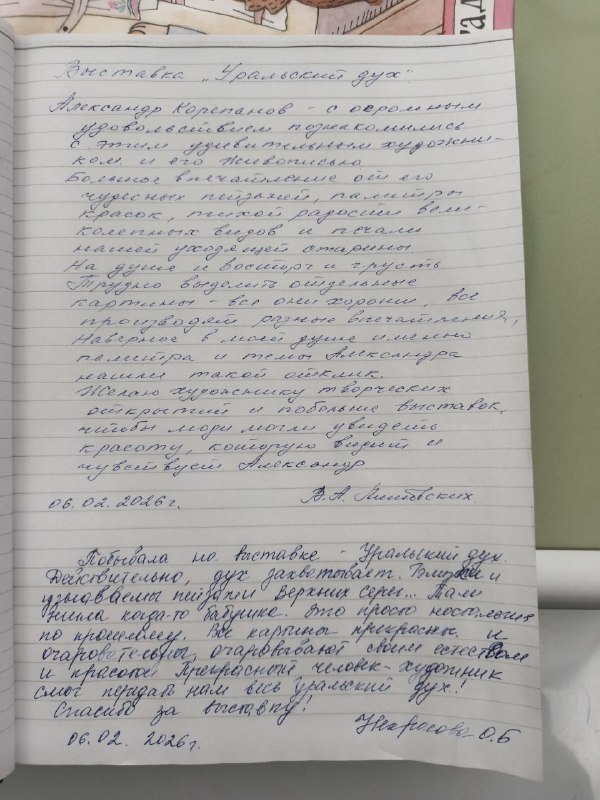 Выставка „Уральский дух"
Александр Корепанов - с огромным
удовольствием познакомились
с этим удивительным художни-
ком и его живописью
Большое впечатление от его
чудесных пейзажей, палитры
красок, тихой радости вели-
колепных видов и печали
нашей уходящей старины.
На душе и восторг и грусть
Трудно выделить отдельные
картины - все они хороши, все
производят разные впечатления,
Наверное в моей душе именно
палитра и темы Александра
нашли такой отклик.
Желаю художнику творческих
открытий и побольше выставок,
чтобы люди могли увидеть
красоту, которую видит и
чувствует Александр
06.02.2026г. В.А.
Побывала на выставке - Уральский дух.
Действительно, дух захватывает. и
узнаваемы пейзажи Верхних Серег... Там
жила когда-то бабушка. Это просто ностальгия
по прошлому. Все картины прекрасны и
очаровательны, очаровывают своим естеством
и красотой. Прекрасный человек-художник
смог передать нам весь уральский дух!
Спасибо за выставку!
06.02. 2026г. Некрасова О.Б